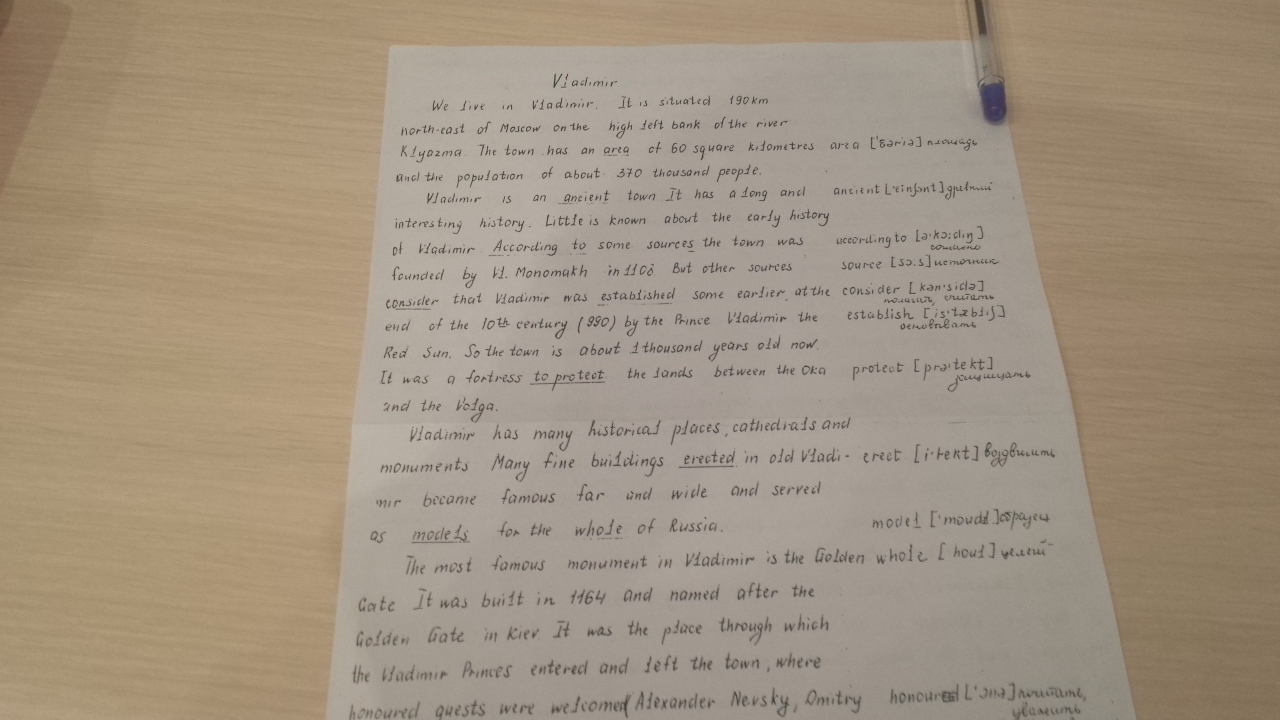 Vladimir
We live in Vladimir. It is situated 190km
north-east of Moscow on the high left bank of the river
Klyazma. The town has an area of 60 square kilometres area ['ɛəriə] площадь
and the population of about 370 thousand people.
Vladimir is an ancient town It has a long and ancient ['einʃənt] древний
interesting history. Little is known about the early history
of Vladimir. According to some sources the town was according to [ə'kɔ:diŋ]
согласно
founded by Vl. Monomakh in 1108 But other sources source [sɔ:s] источник
consider that Vladimir was established some earlier, at the consider [kən'sidə]
полагать, считать
end of the 10th century (990) by the Prince Vladimir the establish [is'tæbliʃ]
основывать
Red Sun. So the town is about 1 thousand years old now.
It was a fortress to protect the lands between the Oka protect [prə'tekt]
защищать
and the Volga.
Vladimir has many historical places, cathedrals and
monuments Many fine buildings erected in old Vladi- erect [i'rekt] воздвигать
mir became famous far and wide and served
as models for the whole of Russia. model ['moudl] образец
The most famous monument in Vladimir is the Golden whole [houl] целый
Gate It was built in 1164 and named after the
Golden Gate in Kiev. It was the place through which
the Vladimir Princes entered and left the town, where
honoured guests were welcomed (Alexander Nevsky, Dmitry honoured ['ɔnə] почитать,
уважать